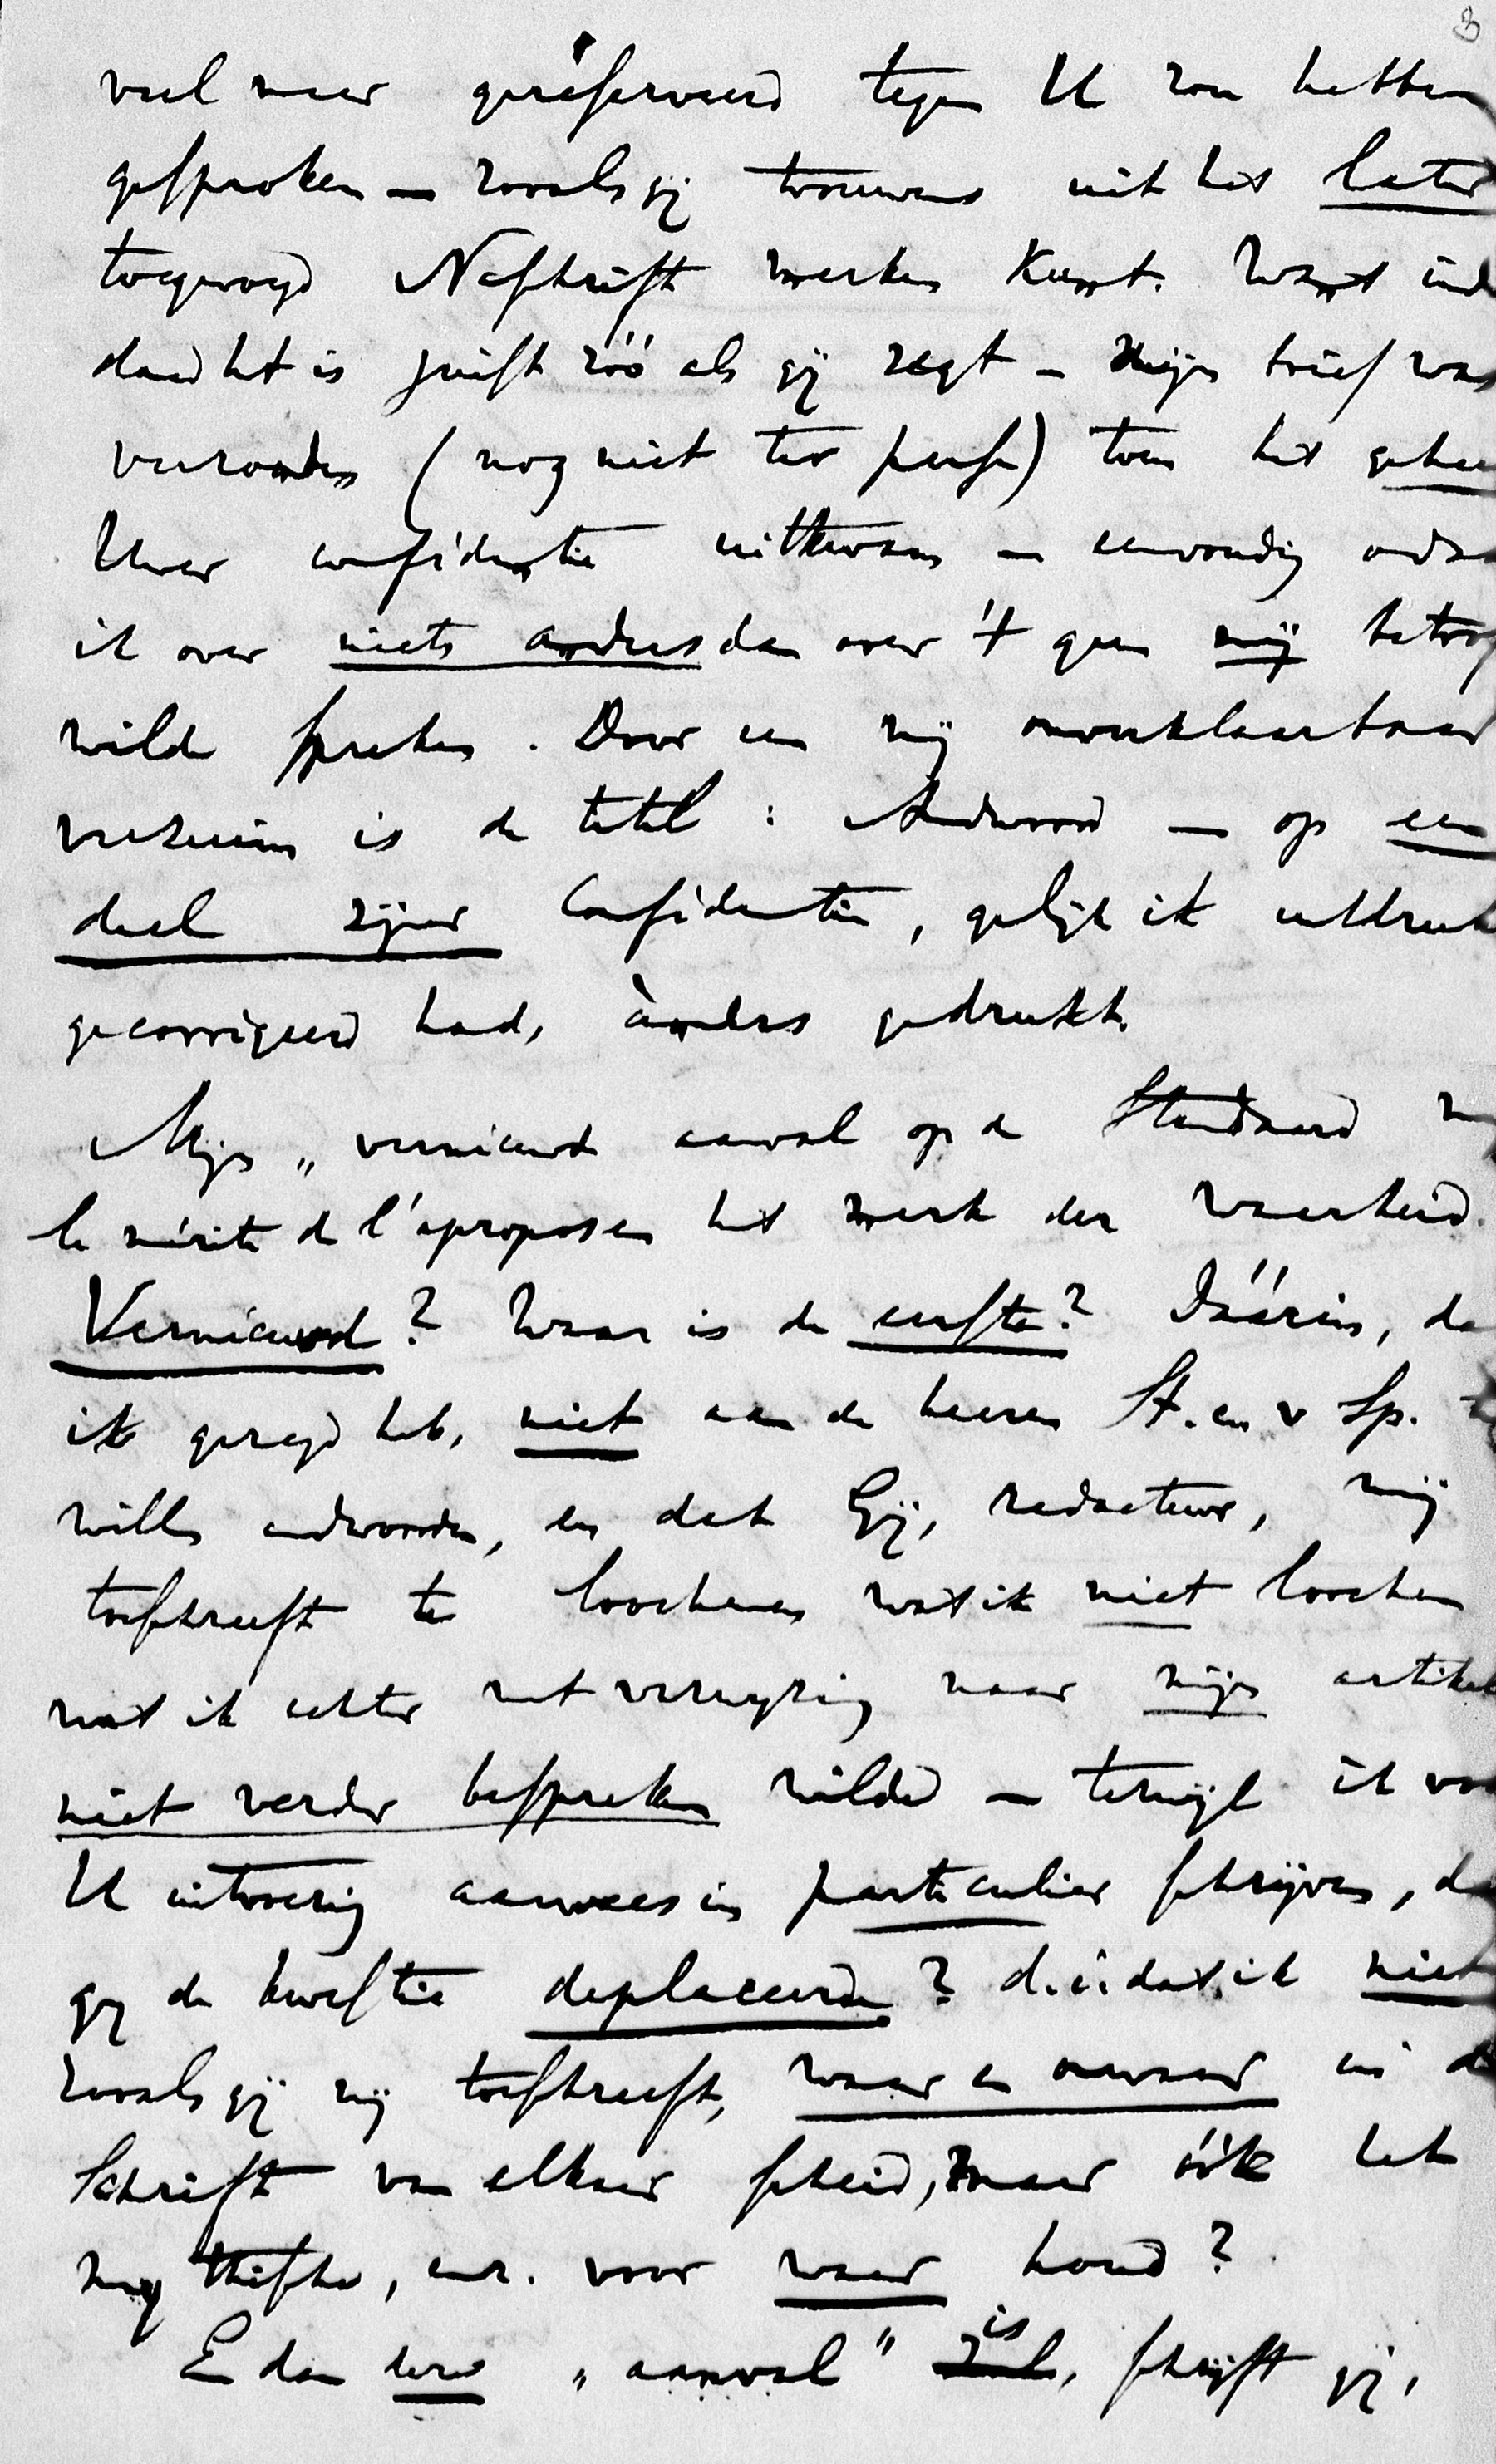 3
veel meer gereserveerd tegen U zou hebben
gesproken — zooals gij trouwens uit het later
toegevoegd Naschrift merken kunt. Want inder
daad het is juist zóó als gij zegt — mijn brief was
verzonden (nog niet ter perse) toen het geheel
Uwer confidentie uitkwam — eenvoudig omdat
ik over niets anders dan over 't geen mij betrof
wilde spreken. Door een mij onverklaarbaar
verzuim is de titel: Andwoord — op een
deel zijner Confidentie, gelijk ik uitdruk
gecorrigeerd had, ànders gedrukt.
Mijn „vernieuwde aanval op de Standaard
le mérite de l'apropos en het merk der waarheid.
Vernieuwd? Waar is de eerste? Dáárin, dat
ik gezegd heb, niet aan de heeren St. en v Sp. te
willen andwoorden, en dat Gij, redacteur, mij
toeschreeft te loochenen wat ik niet loochen
wat ik echter met verwijzing naar mijn artikel
niet verder bespreken wilde — terwijl ik voor
U uitvoerig aanwees in particulier schrijven, dat
gij de kwestie deplaceerde? d.i. dat ik niet
zooals gij mij toeschreeft, waar en onwaar in de
Schrift van elkaar scheid, maar óók het
, enz. voor waar houd?
En dan deze „aanval" is, schrijft gij,